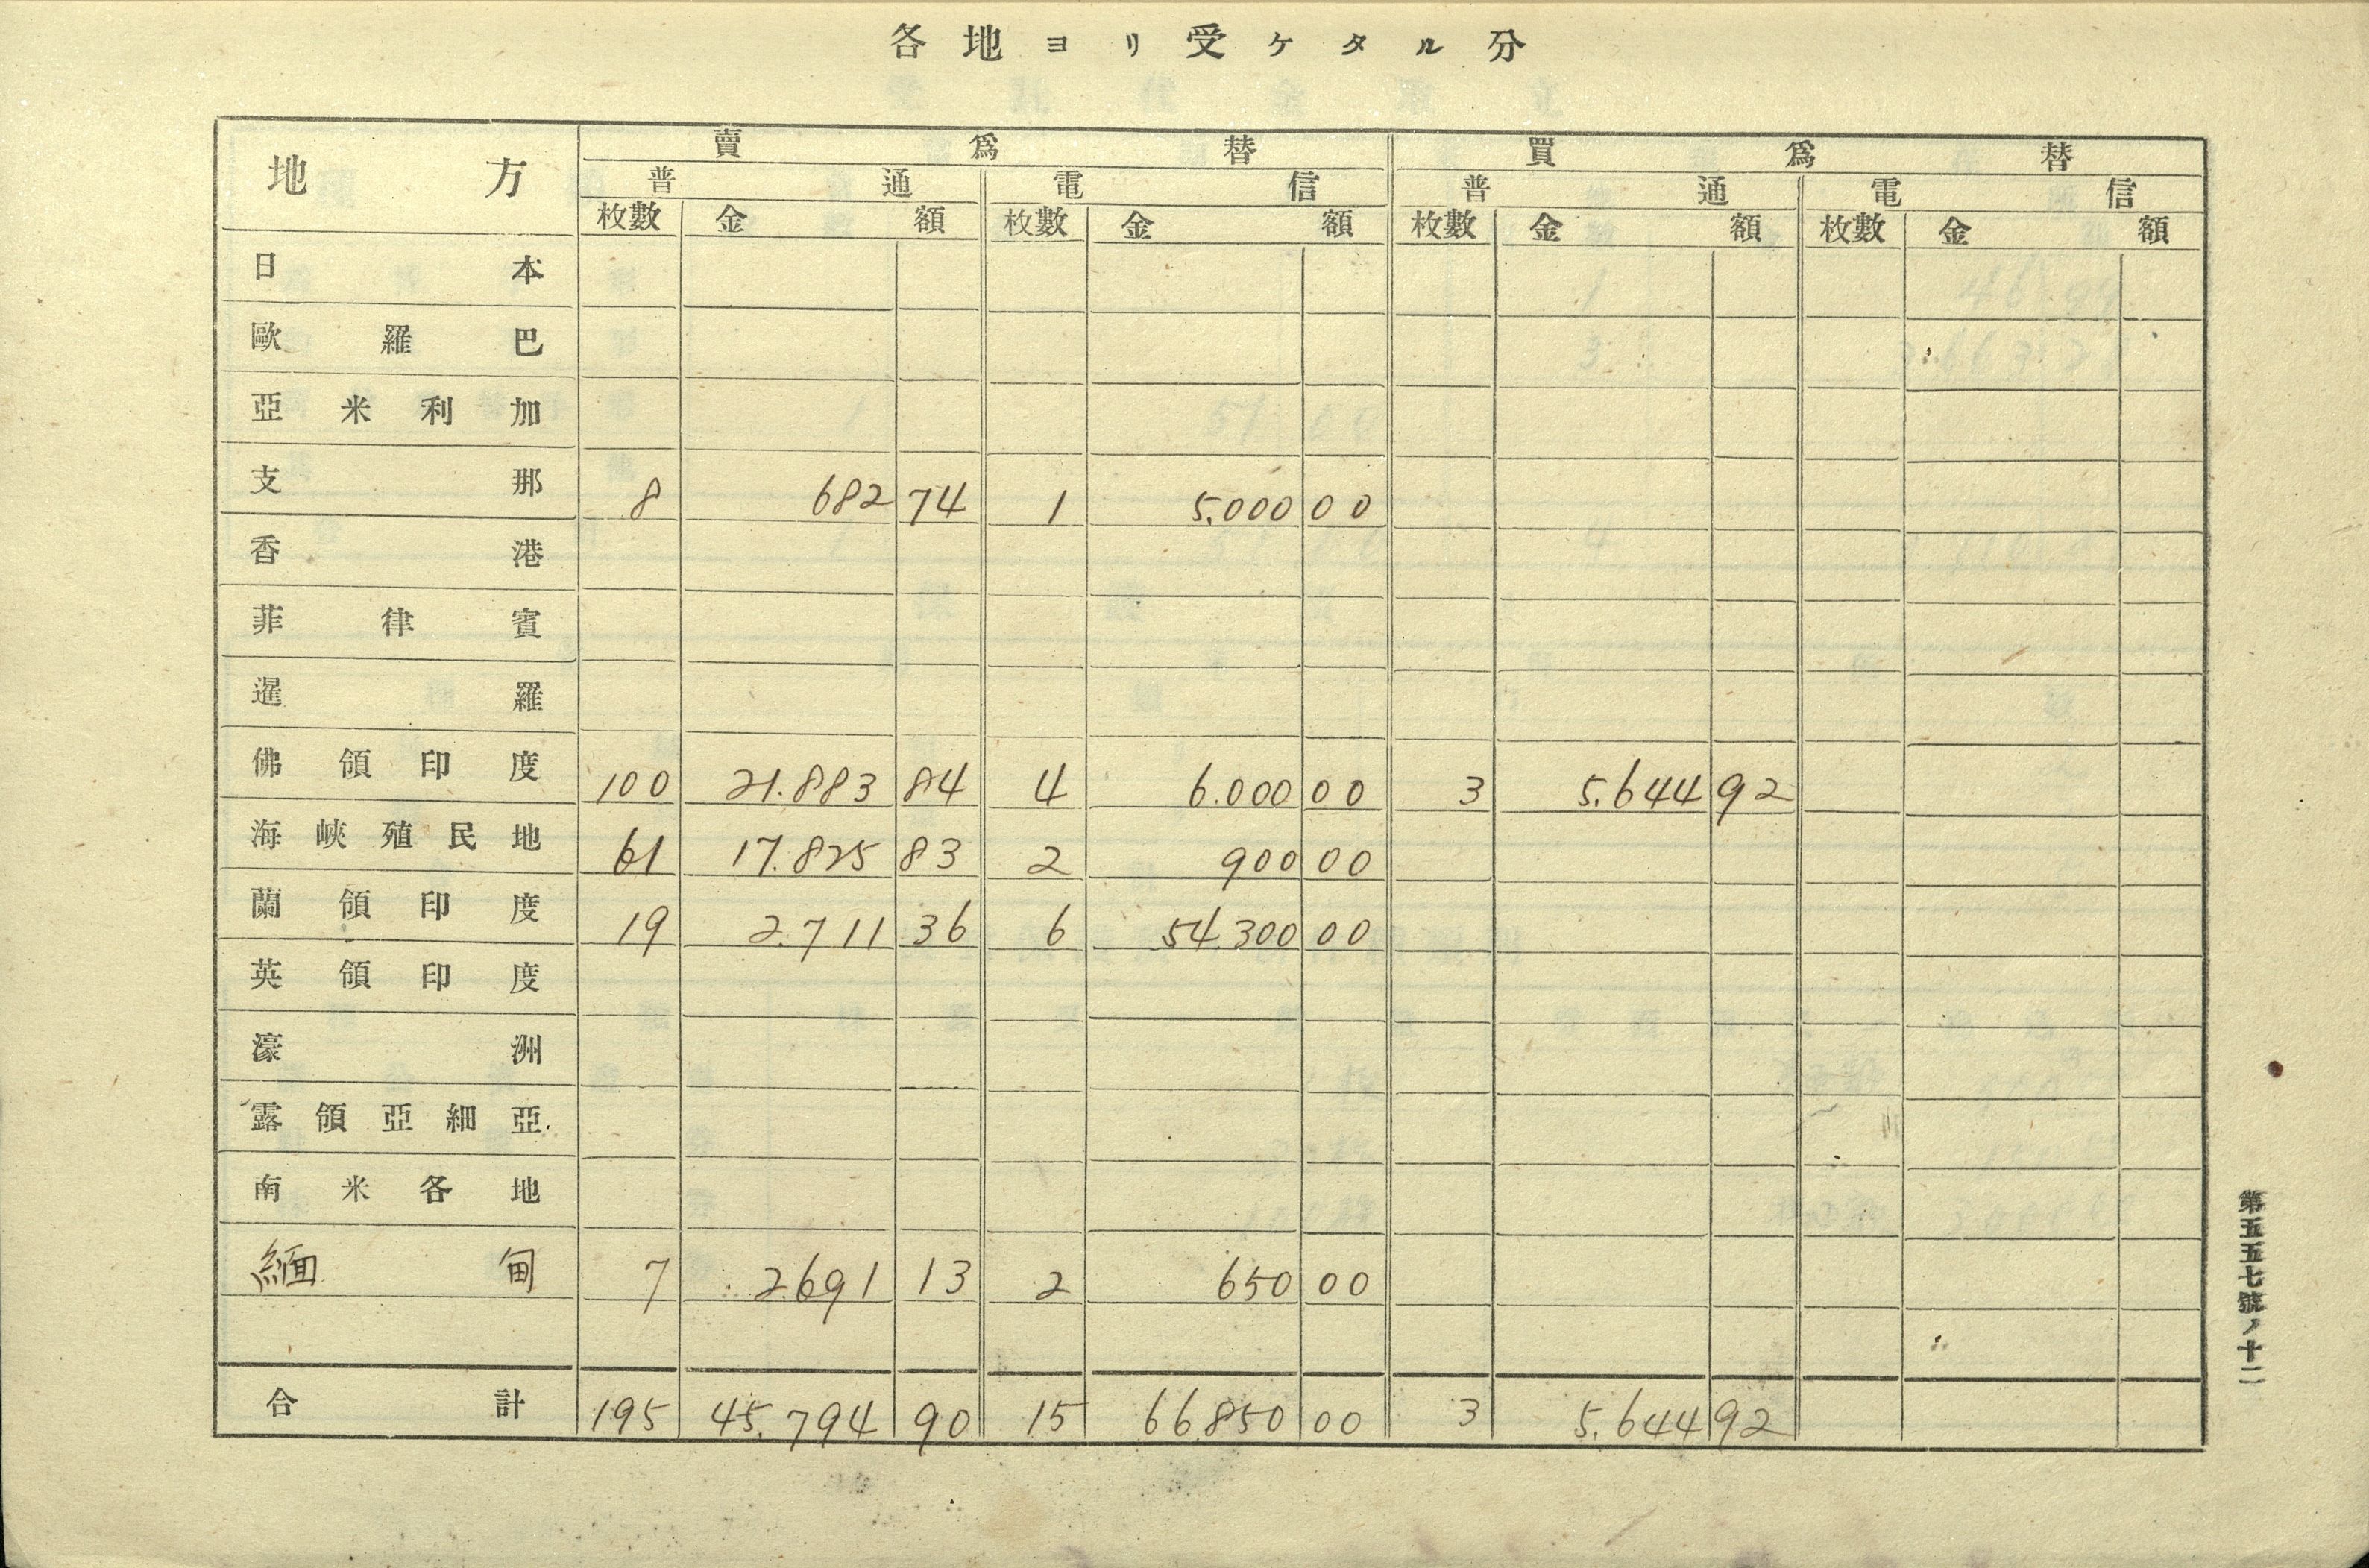 各地ヨリ受ケタル分
地方 賣爲替 買爲替
普通 電信 普通 電信
枚數 金額 枚數 金額 枚數 金額 枚數 金額
日本
歐羅巴
亞米利加
支那 8 682 74 1 5.000 00
香港
菲律賓
暹羅
佛領印度 100 21.883 84 4 6.000 00 3 5.644 92
海峽殖民地 61 17.825 83 2 900 00
蘭領印度 19 2.711 36 6 54.300 00
英領印度
濠洲
露領亞細亞
南米各地
緬甸 7 2.691 13 2 650 00
合計 195 45.794 90 15 66.850 00 3 5.644 92
第五五七號ノ十二